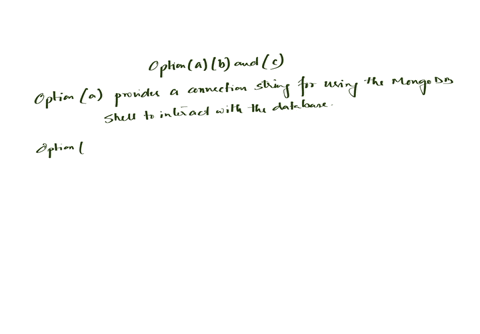 Option (A) (b) and (c)
Option (a) provides a connection string for using the MongoDB
Shell to interact with the database.
Option (